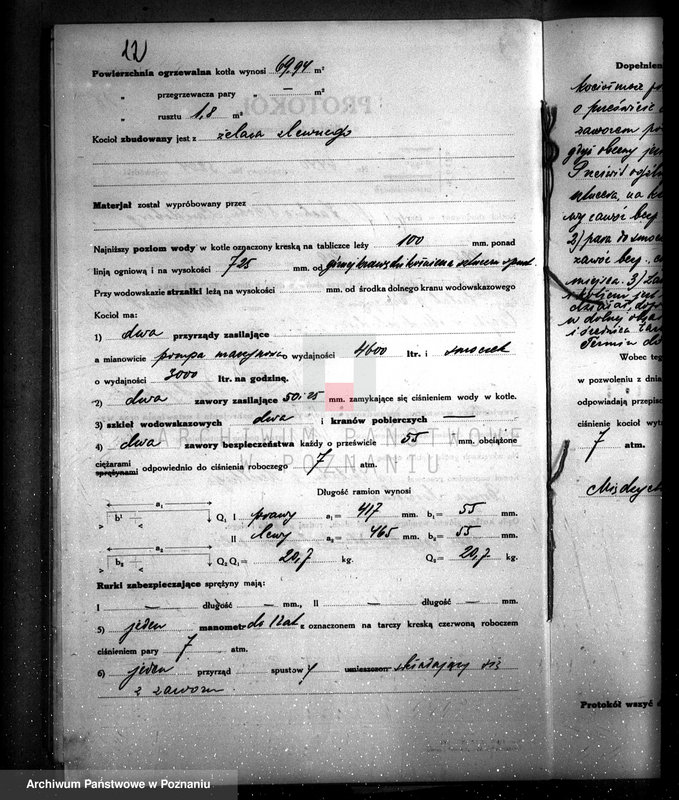 12
Powierzchnia ogrzewalna kotła wynosi 69,94 m²
„ przegrzewacza pary „ — m²
„ rusztu 1,8 m²
Kocioł zbudowany jest z żelaza zlewnego
Materjał został wypróbowany przez
Najniższy poziom wody w kotle oznaczony kreską na tabliczce leży 100 mm. ponad
linją ogniową i na wysokości 725 mm. od górnej krawędzi
Przy wodowskazie strzałki leżą na wysokości mm. od środka dolnego kranu wodowskazowego
Kocioł ma:
1) dwa przyrządy zasilające
a mianowicie pompa maszynowa o wydajności 4600 ltr. i smoczek
o wydajności 3000 ltr. na godzinę.
2) dwa zawory zasilające 50 i 25 mm. zamykające się ciśnieniem wody w kotle.
3) szkieł wodowskazowych dwa i kranów pobierczych —
4) dwa zawory bezpieczeństwa każdy o prześwicie 55 mm. obciążone
ciężarami
sprężynami odpowiednio do ciśnienia roboczego 7 atm.
Długość ramion wynosi
a₁ b¹ Q₁ I prawy a₁ = 417 mm. b₁ = 55 mm.
II lewy a₂ = 465 mm. b₂ = 55 mm.
a₂ b₂ Q₂ Q₁ = 20,7 kg. Q₂ = 20,7 kg.
Rurki zabezpieczające sprężyny mają:
I — długość — mm., II — długość — mm.
5) jeden manometr do 12 at z oznaczonem na tarczy kreską czerwoną roboczem
ciśnieniem pary 7 atm.
6) jeden przyrząd spustowy umieszczon składający się
z zaworu
Dopełnien
kocioł może
o prześwicie
zaworem
2) para do smocz
zawór bezp.
miejsca. 3)
działał,
w dolnej
i średnica
Termin
Wobec teg
w pozwoleniu z dnia
odpowiadają przepiso
ciśnienie kocioł wytr
7 atm.
Międzych
Protokół wszyć d
ARCHIWUM PAŃSTWOWE
W POZNANIU
Archiwum Państwowe w Poznaniu